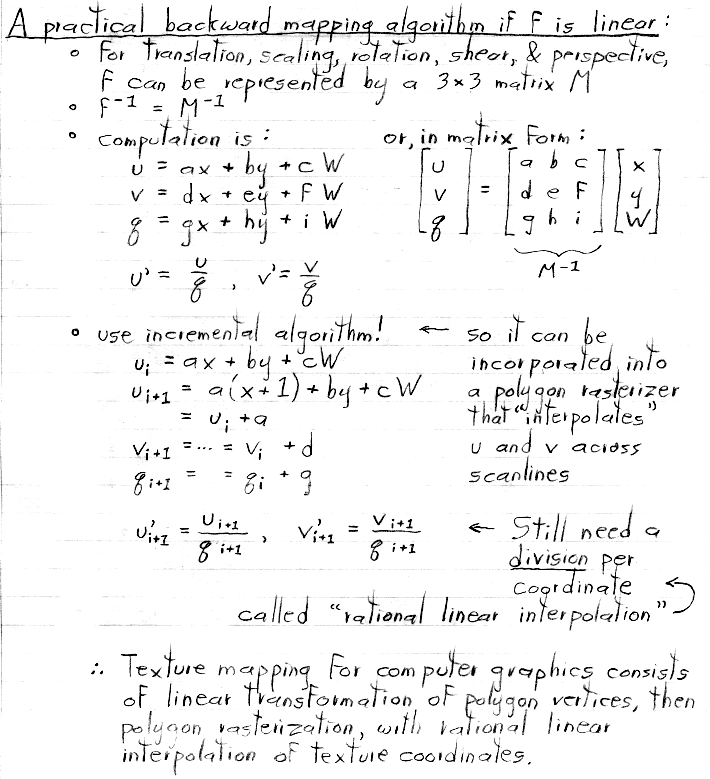 A practical backward mapping algorithm if F is linear:
∘ For translation, scaling, rotation, shear, & perspective,
F can be represented by a 3×3 matrix M
∘ F-1 = M-1
∘ computation is: or, in matrix form:
u = ax + by + cW
v = dx + ey + fW
q = gx + hy + iW
[u v q] = [a b c d e f g h i] [x y W]
M-1
u' = u/q , v' = v/q
∘ use incremental algorithm! ← so it can be
ui = ax + by + cW incorporated into
ui+1 = a(x+1) + by + cW a polygon rasterizer
= ui + a that "interpolates"
vi+1 = ... = vi + d u and v across
qi+1 = = qi + g scanlines
u'i+1 = ui+1/qi+1 , v'i+1 = vi+1/qi+1 ← Still need a
division per
coordinate
called "rational linear interpolation"
∴ Texture mapping for computer graphics consists
of linear transformation of polygon vertices, then
polygon rasterization, with rational linear
interpolation of texture coordinates.